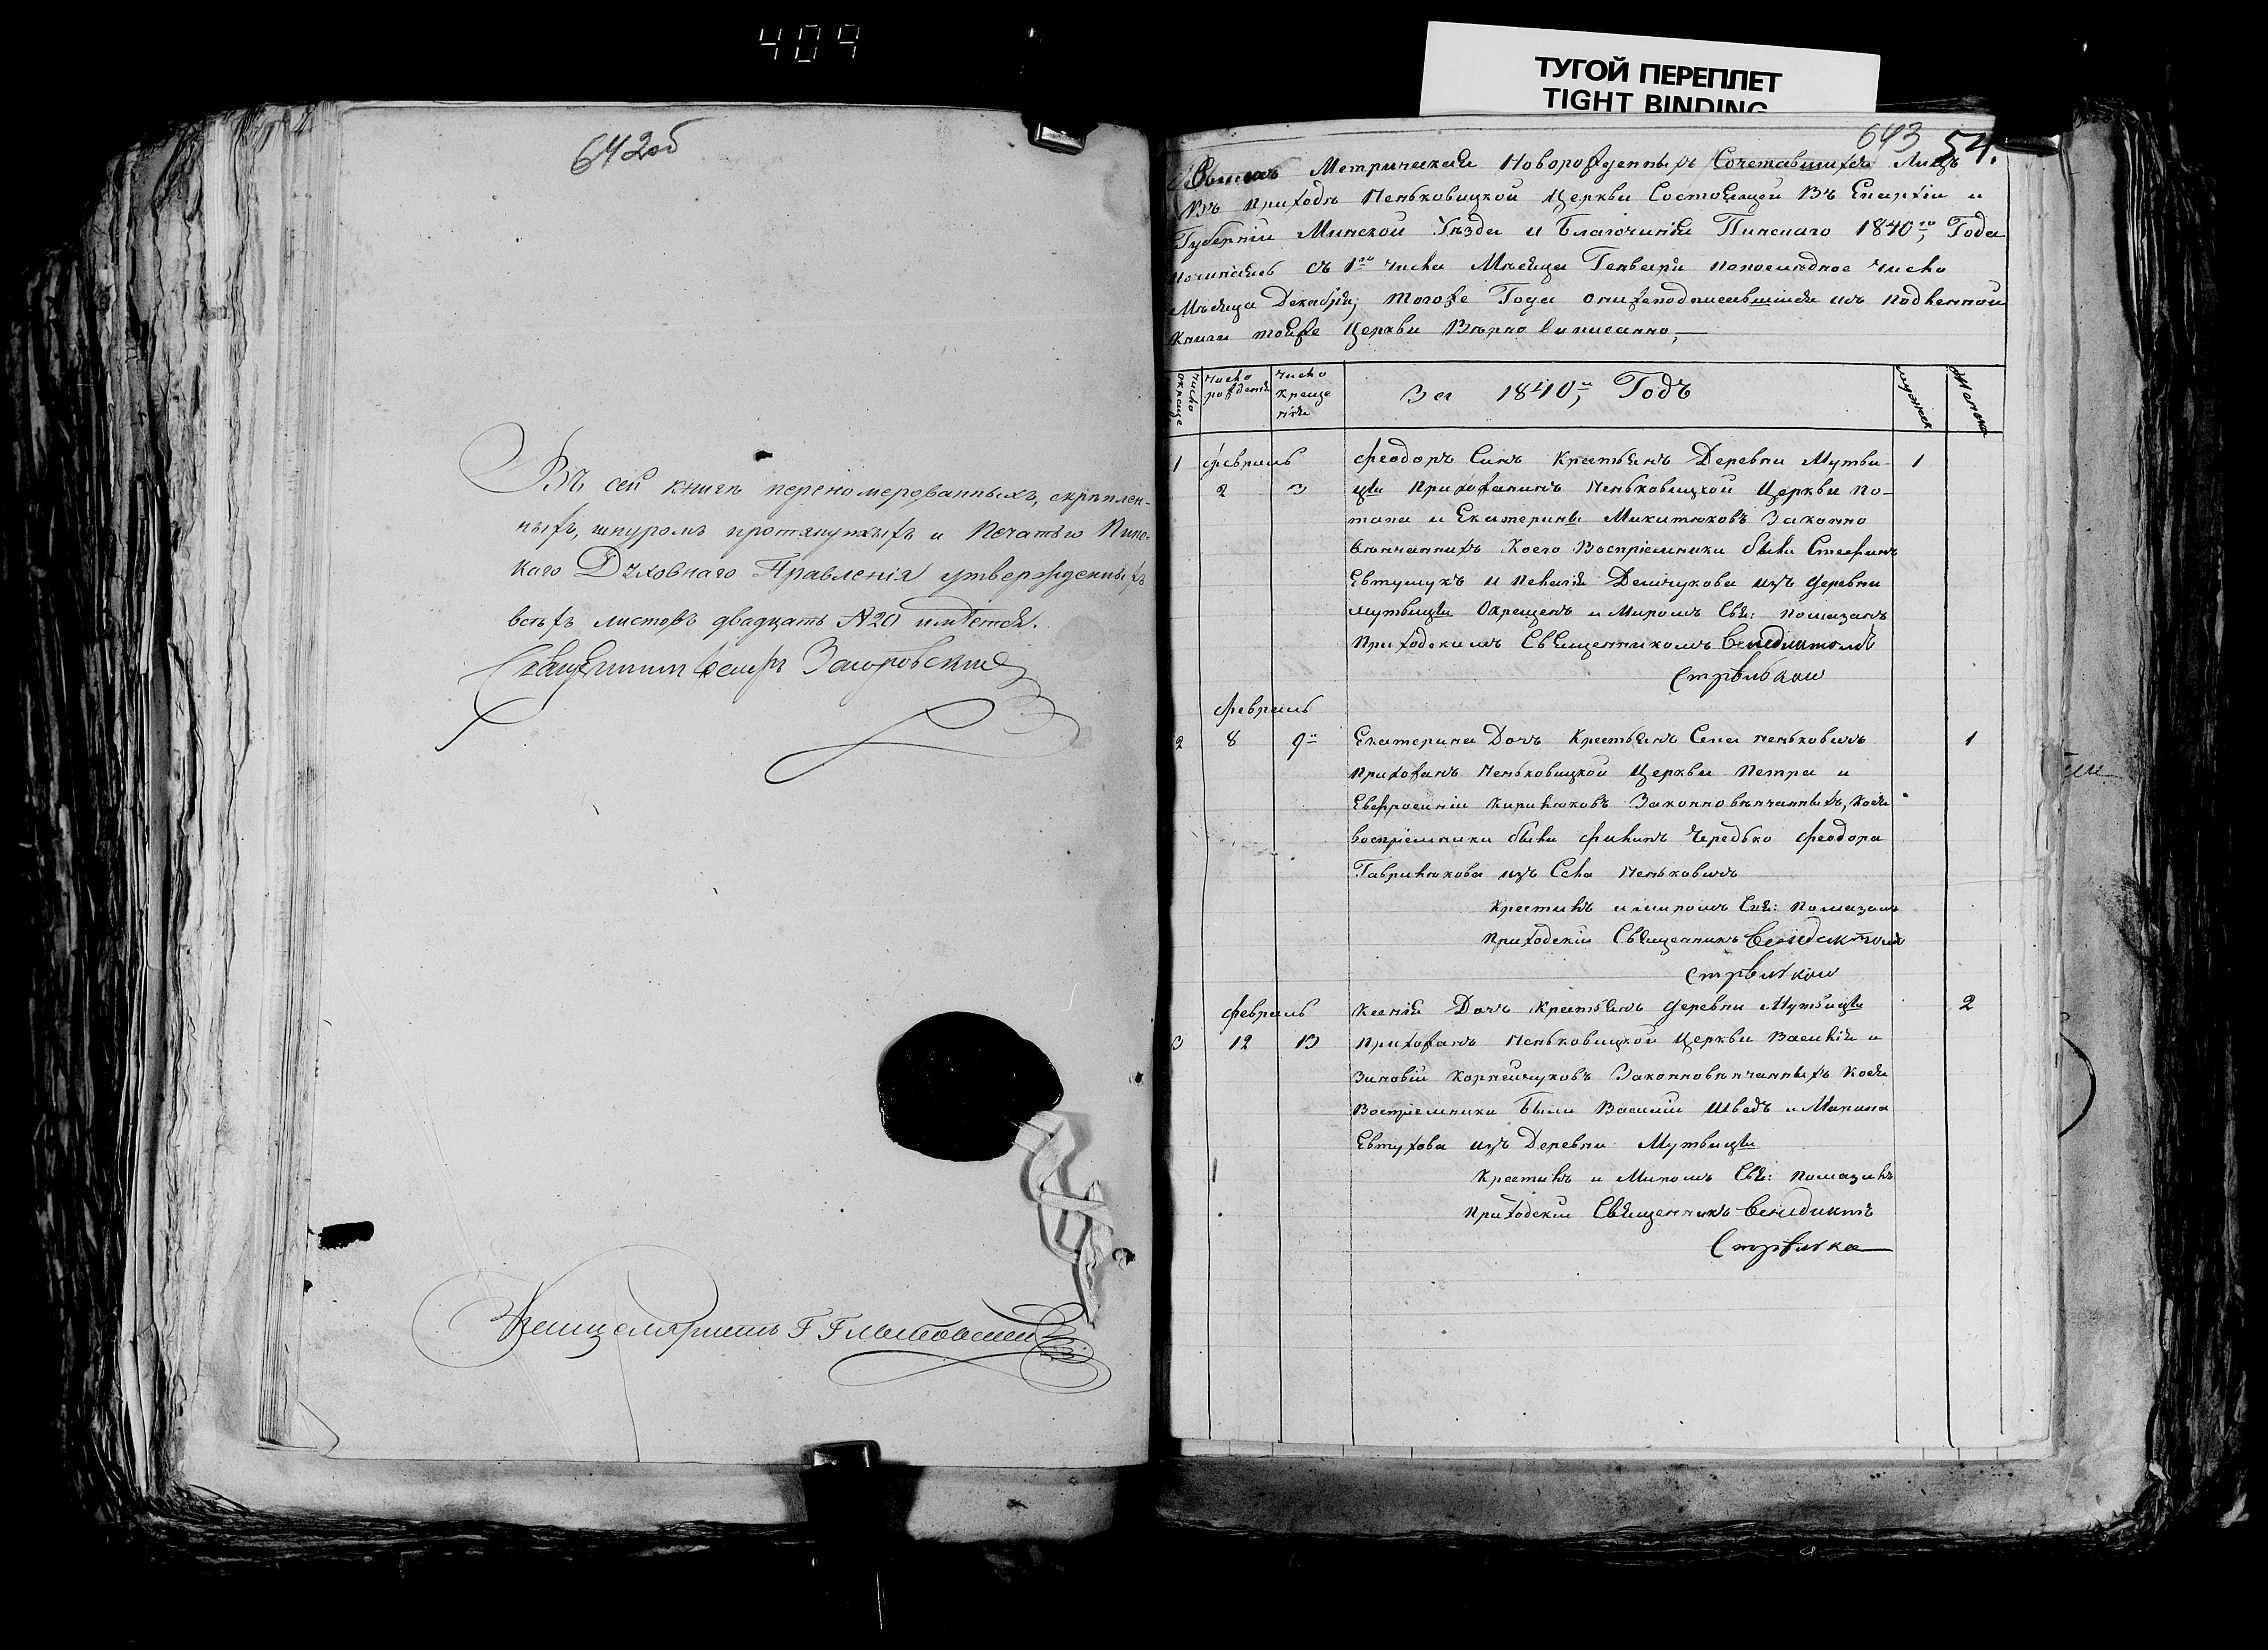 409
ТУГОЙ ПЕРЕПЛЕТ
TIGHT BINDING
642об
Въ сей книгѣ переномерованныхъ, скрѣплен-
ныхъ, шнуромъ протянутыхъ и Печатью Пинс-
каго Духовнаго Правленія утвержденныхъ
всѣхъ листовъ двадцать №20 имѣется.
Священник Загоровский
Канцеляристъ Г
643 54.
Метрическая Новорожденныхъ Сочетавшихся Лицъ
Въ Приходѣ Пеньковицкой Церкви Состоящей Въ Епархіи и
Губерніи Минской Уѣзда и Благочинія Пинскаго 1840го, Года
починаясь съ 1го числа Мѣсяца Генваря попослѣдное число
Мѣсяца Декабря; тогоже Года онижеподписавшійся изъ подленной
Книги тойже Церкви Вѣрно выписанно,
число окреще
число рожденія
число креще нія
За 1840й, Годъ
мужеск
женска
1 февраль Феодоръ Синъ Крестьянъ Деревни Мутви- 1
2 3 цы Прихожанинъ Пеньковицкой Церкви По-
тапа и Екатерины Микитюковъ Законно
вѣнчанныхъ Коего Воспріемники были Стефанъ
Евтушукъ и Пелагія Демчукова изъ деревни
мутвицы Окрещенъ и Миромъ Свя: помазанъ
Приходскимъ Священникомъ Венедиктомъ
Стрвилкои
февраль
2 8 9го Екатерина Дочъ Крестьянъ Села пеньковичъ 1
Прихожанъ Пеньковицкой Церкви Петра и
Евфросиніи Кирилюковъ Законновѣнчанныхъ, Коея
воспріемники были Филипъ Чередько Феодора
Гаврилюкова изъ Села Пеньковичъ
Крестилъ и миромъ Свя: Помазалъ
Приходскій Священникъ Венедиктомъ
стрвилкои
февраль Ксенія Дочъ Крестьянъ деревни Мутвицы 2
3 12 13 Прихожанъ Пеньковицкой Церкви Василія и
Зиновіи Корнейчуковъ Законновѣнчанныхъ Коея
Воспріемники были Василій Шведъ и Марина
Евтухова изъ Деревни Мутвицы
Крестилъ и Миромъ Свя: Помазилъ
Приходскій Священникъ Венедиктъ
Стрвилка